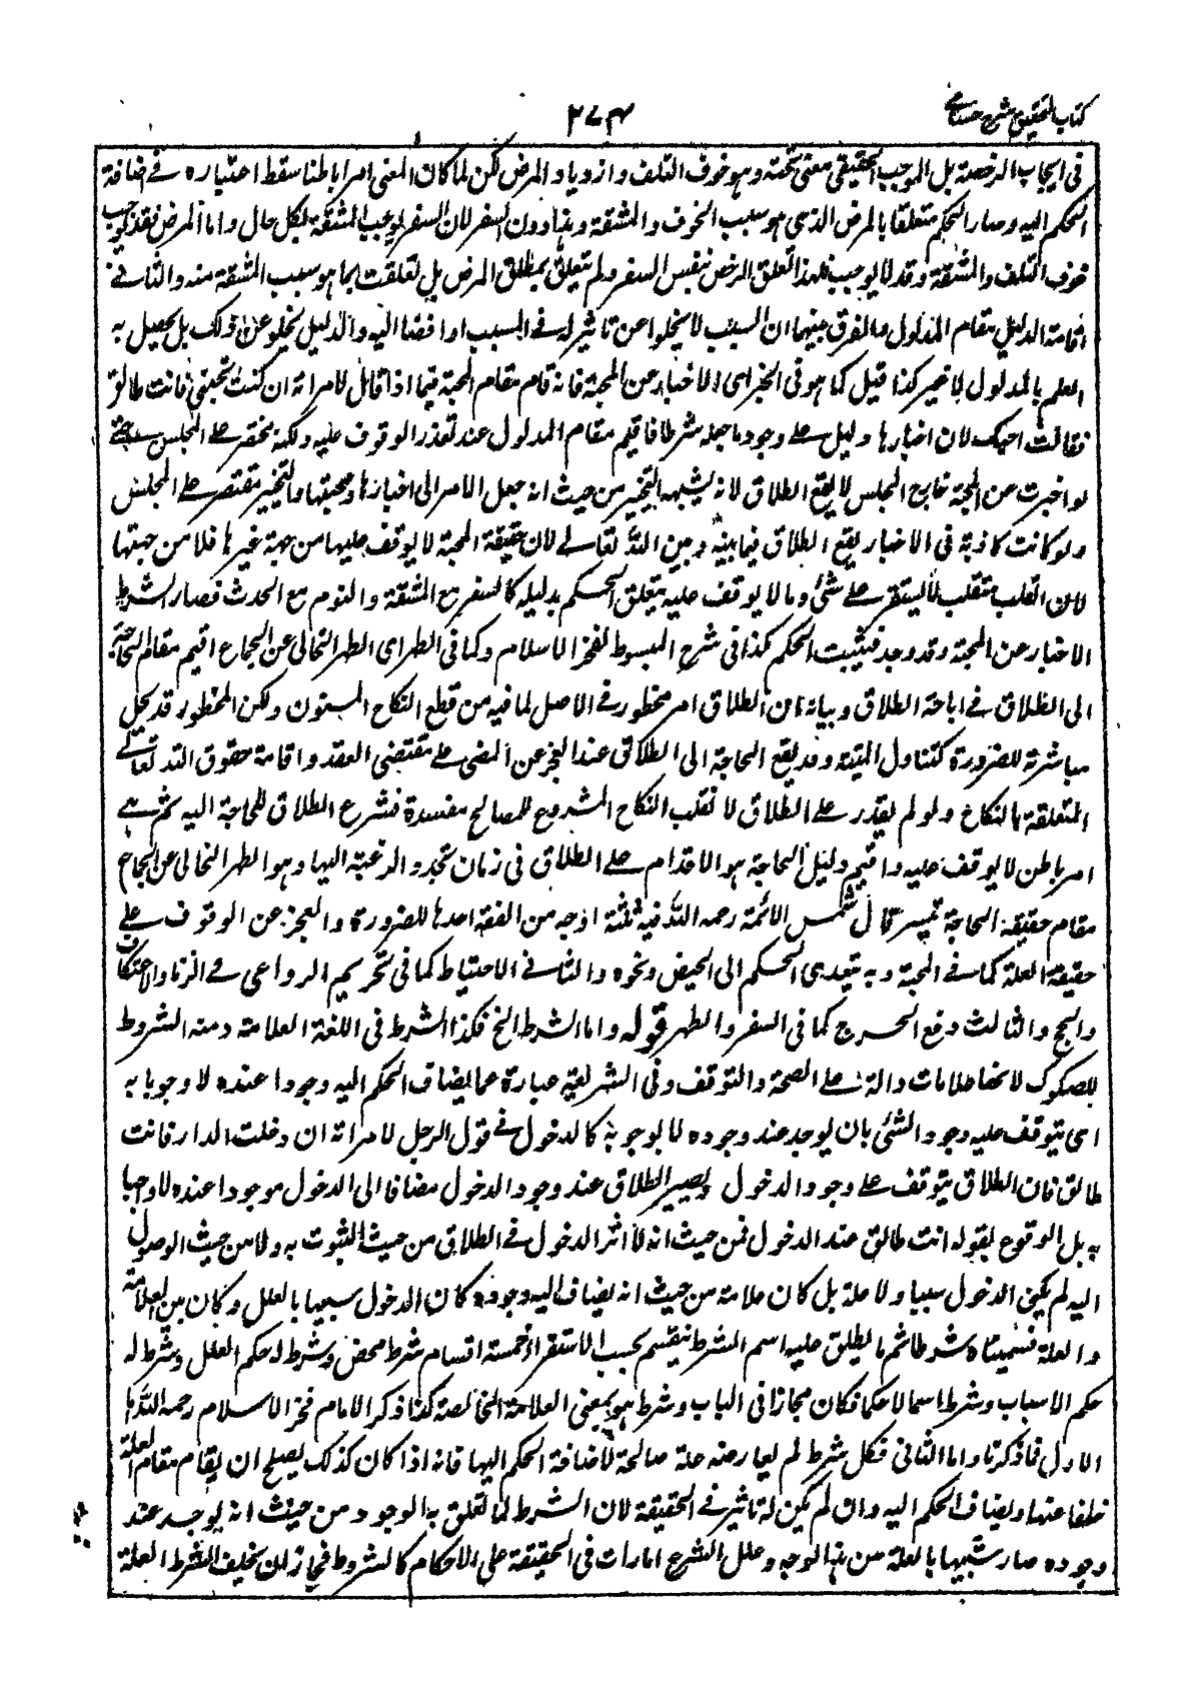 كتاب التحقيق شرح حسامي
٢٧٤
في ايجاب الرخصة بل الموجب الحقيقي معنى تحته وهو خوف التلف وازدياد المرض لكن لما كان المعنى امرا باطنا سقط اعتباره في اضافة
الحكم اليه وصار الحكم متعلقا بالمرض الذي هو سبب الخوف والمشقة وهذا دون السفر لان السفر يوجب المشقة بكل حال واما المرض فقد يوجب
خوف التلف والمشقة وقد لا يوجب فلهذا تعلق الرخص بنفس السفر ولم تتعلق بمطلق المرض بل تعلقت بما هو سبب المشقة منه والثاني
اقامة الدليل مقام المدلول والفرق بينهما ان السبب لا يخلوا عن تاثير له في المسبب او افضا اليه والدليل يخلو عن ذلك بل يحصل به
العلم بالمدلول لا غير كذا قيل كما هو في الخبر اى الاخبار عن المحبة فانه قام مقام المحبة فيما اذا قال لامراته ان كنت تحبيني فانت طالق
فقالت احبك لان اخبارها دليل على وجود ما جعله شرطا فاقيم مقام المدلول عند تعذر الوقوف عليه ولكنه يقتصر على المجلس حتى
لو اخبرت عن المحبة خارج المجلس لا يقع الطلاق لانه يشبه التخيير من حيث انه جعل الامر الى اخبارها ومحبتها والتخيير مقتصر على المجلس
ولو كانت كاذبة في الاخبار يقع الطلاق فيما بينه وبين الله تعالى لان حقيقة المحبة لا يوقف عليها من جهة غيرها فلا من جهتها
لان القلب متقلب لا يستقر على شئ وما لا يوقف عليه يتعلق الحكم بدليله كالسفر مع المشقة والنوم مع الحدث فصار الشرط
الاخبار عن المحبة وقد وجد فيثبت الحكم كذا في شرح المبسوط لفخر الاسلام وكما في الطهر اى الطهر الخالى عن الجماع اقيم مقام الحاجة
الى الطلاق في اباحة الطلاق وبيانه ان الطلاق امر محظور في الاصل لما فيه من قطع النكاح المسنون ولكن المحظور قد يحل
مباشرته للضرورة كتناول الميتة وقد يقع الحاجة الى الطلاق عند العجز عن المضى على مقتضى العقد واقامة حقوق الله تعالى
المتعلقة بالنكاح ولو لم يقدر على الطلاق لانقلب النكاح المشروع للمصالح مفسدة فشرع الطلاق للحاجة اليه ثم هي
امر باطن لا يوقف عليه واقيم دليل الحاجة هو الاقدام على الطلاق في زمان تجدد الرغبة اليها وهو الطهر الخالى عن الجماع
مقام حقيقة الحاجة تيسيرا قال شمس الائمة رحمه الله فيه ثلثة اوجه من الفقه احدها للضرورة والعجز عن الوقوف على
حقيقة العلة كما في المحبة وبه يتعدى الحكم الى الحيض ونحوه والثاني الاحتياط كما في تحريم الدواعى في الزنا والاعتكاف
والحج والثالث دفع الحرج كما في السفر والطهر قوله واما الشرط الخ فكذا الشرط في اللغة العلامة ومنه الشروط
للصكوك لانها علامات دالة على الصحة والتوقف وفي الشريعة عبارة عما يضاف الحكم اليه وجودا عنده لا وجوبا به
اى يتوقف عليه وجود الشئ بان يوجد عند وجوده لا بوجوبه كالدخول في قول الرجل لامراته ان دخلت الدار فانت
طالق فان الطلاق يتوقف على وجود الدخول ويصير الطلاق عند وجود الدخول مضافا الى الدخول موجودا عنده لا واجبا
به بل الوقوع بقوله انت طالق عند الدخول فمن حيث انه لا اثر الدخول في الطلاق من حيث الثبوت به ولا من حيث الوصول
اليه لم يكن الدخول سببا ولا علة بل كان علامة من حيث انه يضاف اليه وجوده كان الدخول شبيها بالعلل وكان بين العلامة
والعلة فسميناه شرطا ثم ما يطلق عليه اسم الشرط ينقسم بحسب الاستقراء خمسة اقسام شرط محض وشرط له حكم العلل وشرط له
حكم الاسباب وشرط اسما لا حكما فكان مجازا في الباب وشرط هو بمعنى العلامة الخالصة كذا ذكر الامام فخر الاسلام رحمه الله اما
الاول فما ذكرنا واما الثاني فكل شرط لم يعارضه علة صالحة لاضافة الحكم اليها فانه اذا كان كذلك يصلح ان يقام مقام العلة
خلفا عنها ويضاف الحكم اليه وان لم يكن له تاثير في الحقيقة لان الشرط لما تعلق به الوجود من حيث انه يوجد عند
وجوده صار شبيها بالعلة من هذا الوجه وعلل الشرع امارات في الحقيقة على الاحكام كالشروط فيجاز ان يخلف الشرط العلة